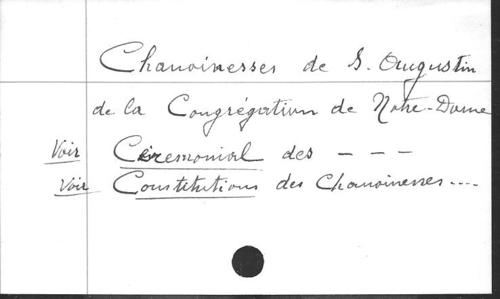 Chanoinesses de S. Augustin
de la Congrégation de Notre-Dame
Voir Cérémonial des - - -
Voir Constitutions des Chanoinesses ....